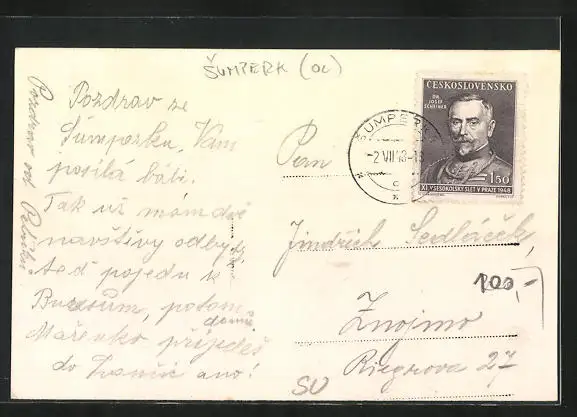 ŠUMPERK (OL)
Pozdrav ze
Šumperka, Vám
posílá bábi.
Tak už mám dvě
návštěvy odbyty
teď pojedu k
potom
Mařenko přijedeš
domů
do ano!
Pozdrav od
ČESKOSLOVENSKO
DR. JOSEF SCHEINER
1.50
XI. VŠESOKOLSKÝ SLET V PRAZE 1948
ŠUMPERK
-2.VII.48-18
Pan
Jindřich Sedláček,
Znojmo
Riegrova 27
SU